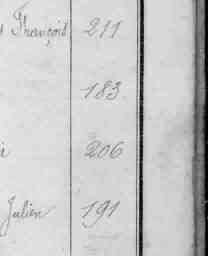 François 211
183
206
Julien 191